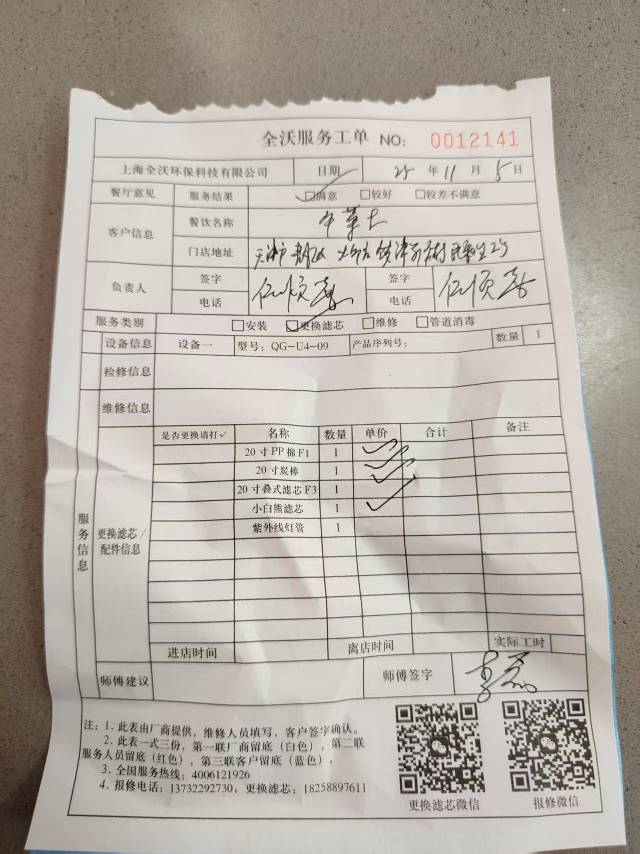 全沃服务工单 NO: 0012141
上海全沃环保科技有限公司 日期 25 年 11 月 5 日
餐厅意见 服务结果 ☑满意 □较好 □较差不满意
客户信息 餐饮名称
门店地址 天津市
负责人 签字 签字
电话 电话
服务类别 □安装 ☑更换滤芯 □维修 □管道消毒
设备信息 设备一 型号: QG-U4-09 产品序列号: 数量 1
检修信息
维修信息
服务信息
更换滤芯/配件信息
是否更换请打✓ 名称 数量 单价 合计 备注
20寸PP棉F1 1 ✓
20寸炭棒 1 ✓
20寸叠式滤芯F3 1 ✓
小白熊滤芯 1 ✓
紫外线灯管 1
进店时间 离店时间 实际工时
师傅建议 师傅签字
注: 1. 此表由厂商提供, 维修人员填写, 客户签字确认。
2. 此表一式三份, 第一联厂商留底(白色), 第二联
服务人员留底(红色), 第三联客户留底(蓝色)。
3. 全国服务热线: 4006121926
4. 报修电话: 13732292730; 更换滤芯: 18258897611
更换滤芯微信 报修微信